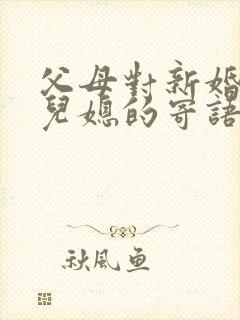 父母對新婚
兒媳的寄語
秋風魚